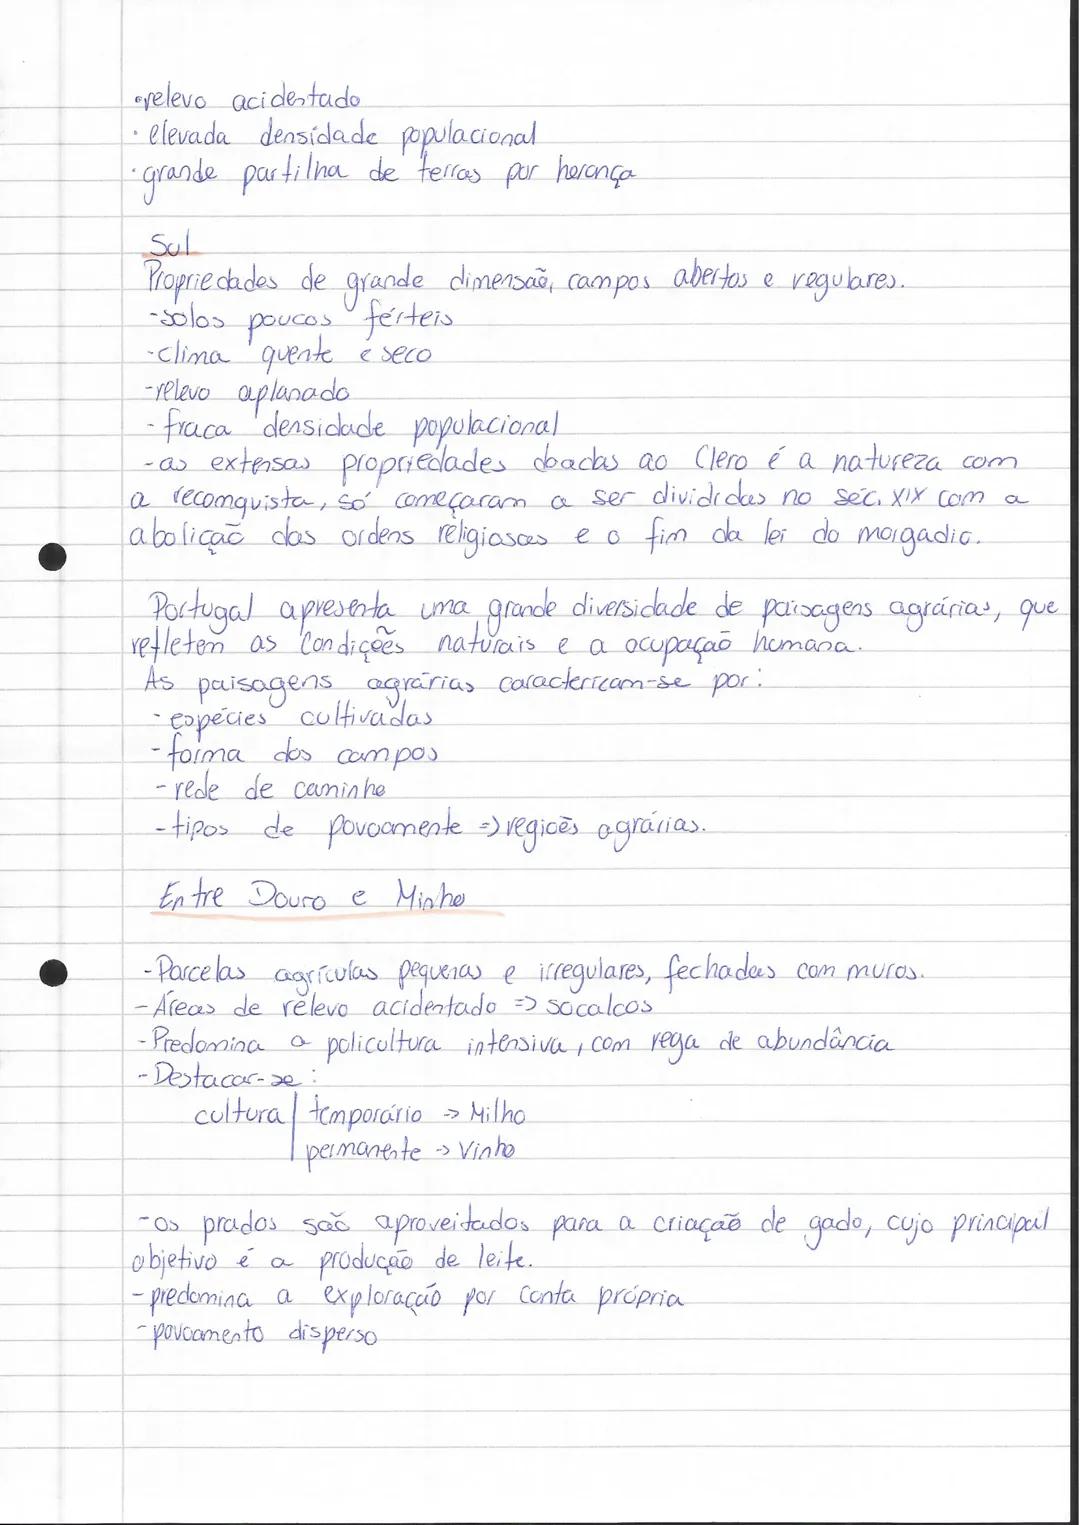 •relevo acidentado
• elevada densidade populacional
• grande partilha de terras por herança
Sul
Propriedades de grande dimensão, campos abertos e regulares.
-solos poucos férteis
-clima quente e seco
-relevo aplanado
- fraca densidade populacional
-as extensas propriedades doadas ao Clero é a natureza com
a reconquista, só começaram a ser divididas no séc. XIX com a
abolição das ordens religiosas e o fim da lei do morgadio.
Portugal apresenta uma grande diversidade de paisagens agrárias, que
refletem as condições naturais e a ocupação humana.
As paisagens agrárias caracterizam-se por:
- espécies cultivadas
- forma dos campos
- rede de caminho
- tipos de povoamento => regiões agrárias.
Entre Douro e Minho
- Parcelas agrículas pequenas e irregulares, fechadas com muros.
- Áreas de relevo acidentado => socalcos
- Predomina a policultura intensiva, com rega de abundância
- Destacar-se :
cultura | temporário -> Milho
permanente -> Vinho
-os prados são aproveitados para a criação de gado, cujo principal
objetivo é a produção de leite.
- predomina a exploração por conta própria
- povoamento disperso